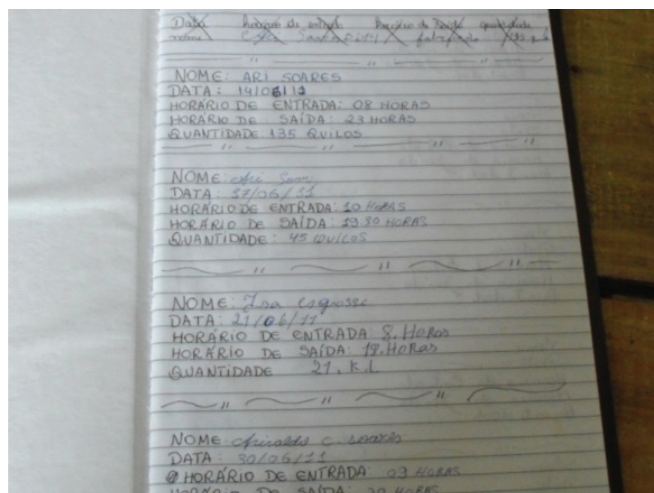 Data horário de entrada horário de saída quantidade
nome
NOME: ARI SOARES
DATA: 14/06/11
HORÁRIO DE ENTRADA: 08 HORAS
HORÁRIO DE SAÍDA: 23 HORAS
QUANTIDADE 135 QUILOS
NOME:
DATA: 17/06/11
HORÁRIO DE ENTRADA: 10 HORAS
HORÁRIO DE SAÍDA: 19 30 HORAS
QUANTIDADE: 45 QUILOS
NOME:
DATA: 21/06/11
HORÁRIO DE ENTRADA 8. HORAS
HORÁRIO DE SAÍDA: 19. HORAS
QUANTIDADE 21. K.L
NOME
DATA: 30/06/11
HORÁRIO DE ENTRADA: 09 HORAS
HORÁRIO DE SAÍDA: 20 HORAS